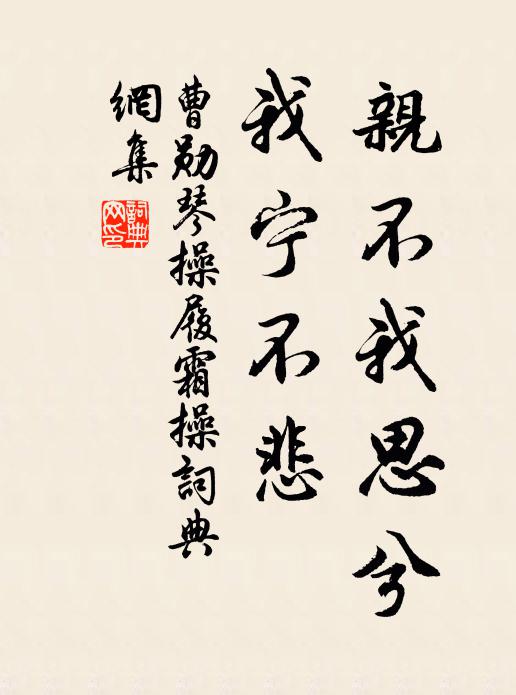 親不我思兮
我宁不悲
曹勋琴操履霜操詞典
網集
詞典
网印